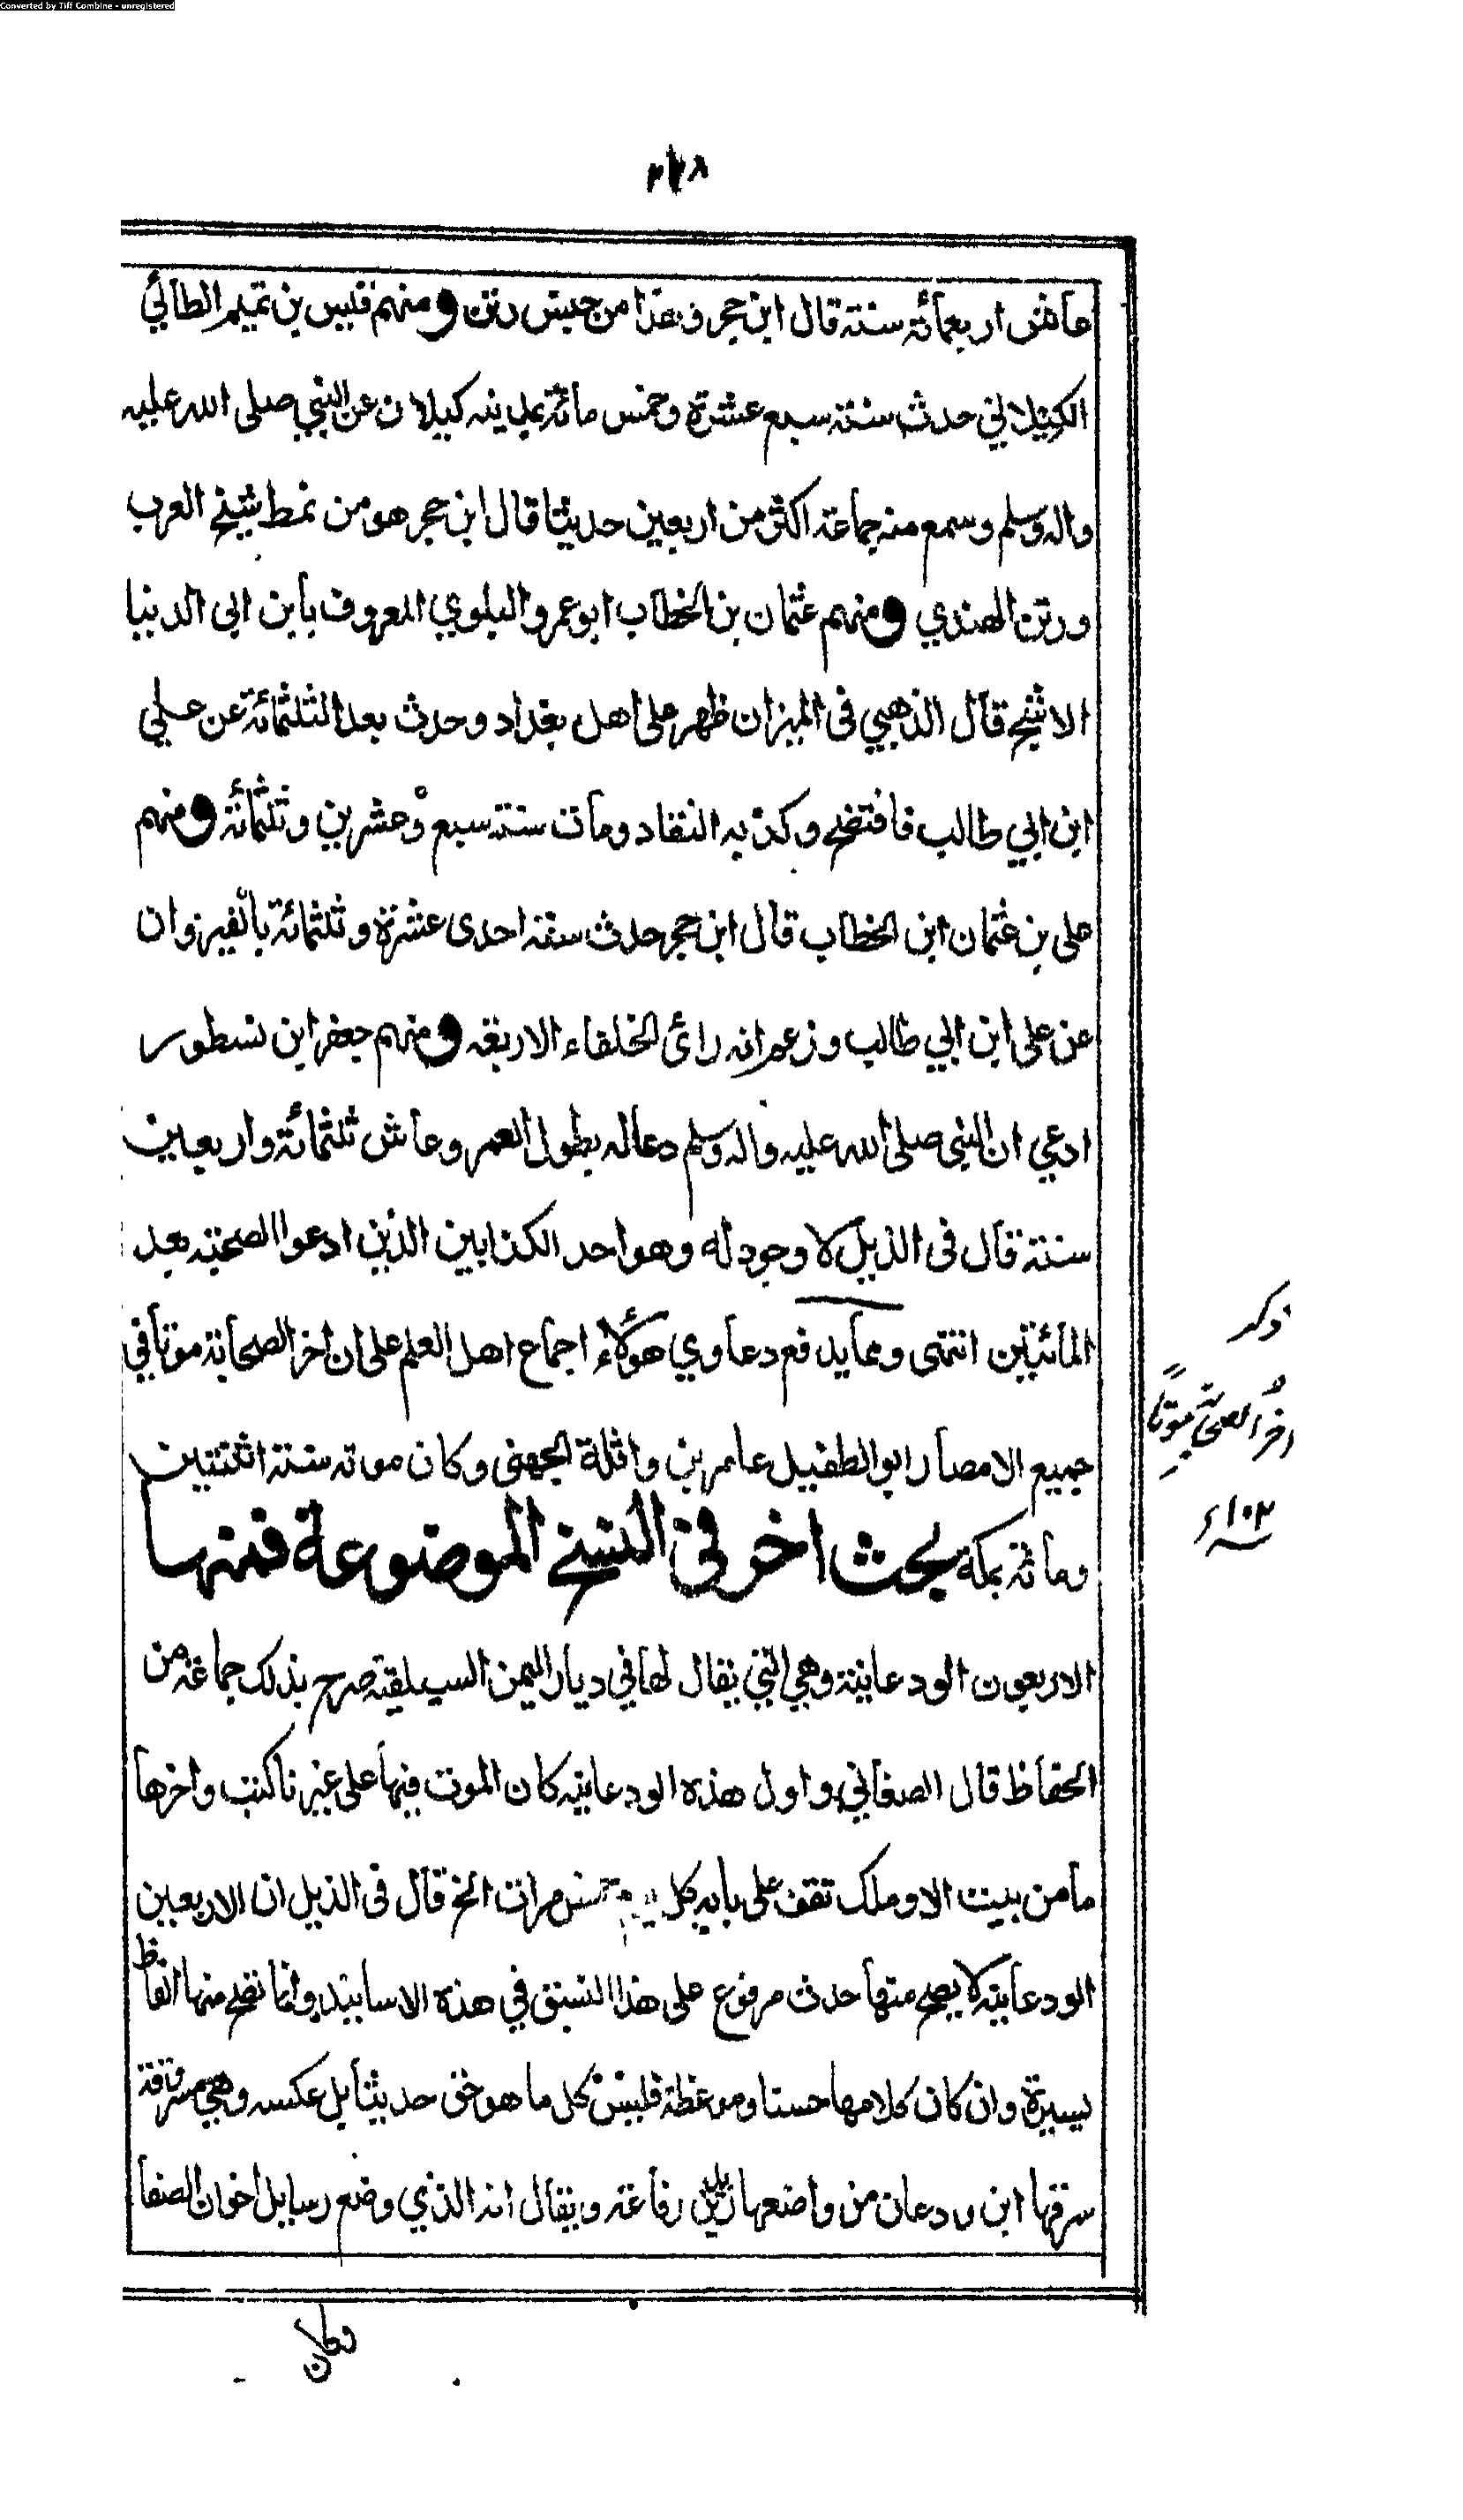 Converted by Tiff Combine - unregistered
عاش اربعمائة سنة قال ابن حجر وهذا من جيش رتن ومنهم قيس بن تميم الطائي
الكيلاني حدث سنة سبع عشرة وخمس مائة بمدينه كيلان عن النبي صلى الله عليه
واله وسلم وسمع منه جماعة اكثر من اربعين حديثا قال ابن حجر هو من نمط شيخ العرب
ورتن الهندي ومنهم عثمان بن الخطاب ابو عمرو البلوي المعروف بابن ابى الدنيا
الاشج قال الذهبي فى الميزان ظهر على اهل بغداد وحدث بعد الثلثمائة عن علي
ابن ابي طالب فافتضح وكذبه النقاد ومات سنة سبع وعشرين وثلثمائة ومنهم
على بن عثمان ابن الخطاب قال ابن حجر حدث سنة احدى عشرة وثلثمائة بالقيروان
عن على ابن ابي طالب وزعم انه رائ الخلفاء الاربعة ومنهم جعفر ابن نسطور
ادعي ان النبى صلى الله عليه واله وسلم دعا له بطول العمر وعاش ثلثمائة واربعين
سنة قال فى الذيل لا وجود له وهو احد الكذابين الذين ادعوا الصحبة بعد
المائتين انتهى ومما يدفع دعاوي هؤلاء اجماع اهل العلم على ان اخر الصحابة موتا في
جميع الامصار ابو الطفيل عامر بن واثلة الجهنى وكان موته سنة اثنتين
ومائة بمكة بحث اخر في النسخ الموضوعة فمنها
الاربعون الودعانية وهي التي يقال لها في ديار اليمن السيلقية صرح بذلك جماعة من
الحفاظ قال الصغاني واول هذه الودعانية كان الموت فيها على غيرنا كتب واخرها
ما من بيت الا وملك تقف على بابه كل يوم خمس مرات الخ قال فى الذيل ان الاربعين
الودعانية لا يصح منها حدث مرفوع على هذا النسق في هذه الاسانيد وانما تصح منها الفاظ
يسيرة وان كان كلامها حسنا وموعظة فليس كل ما هو حق حديثا بل عكسه وهي مسروقة
سرقها ابن ودعان من واضعها زيد بن رفاعة ويقال انه الذي وضع رسايل اخوان الصفا
ذكر
اخر الصحابة موتاً